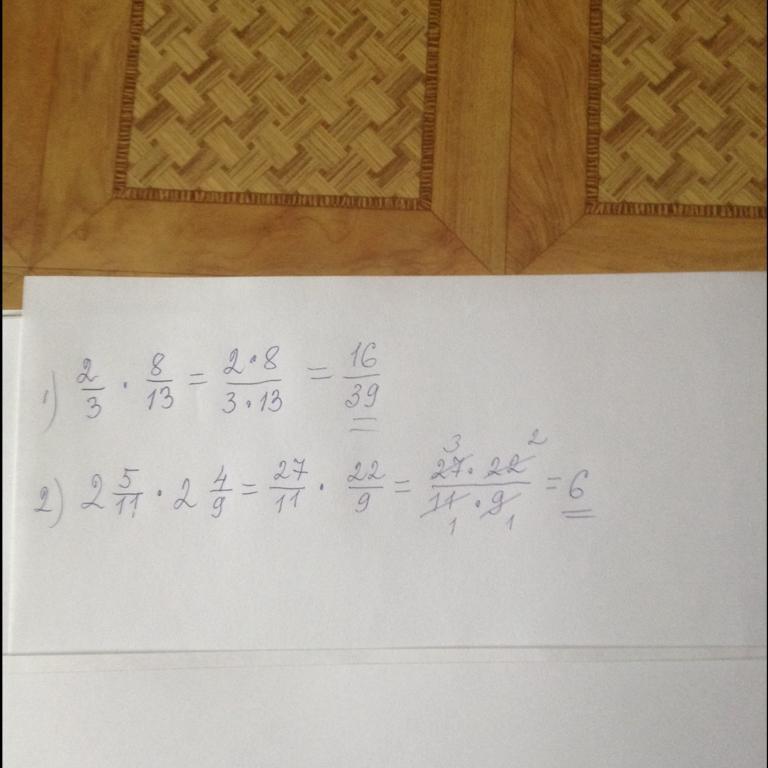 1) 2/3 · 8/13 = 2·8/3·13 = 16/39
2) 2 5/11 · 2 4/9 = 27/11 · 22/9 = 3 27 · 22 2/11 1 · 9 1 = 6